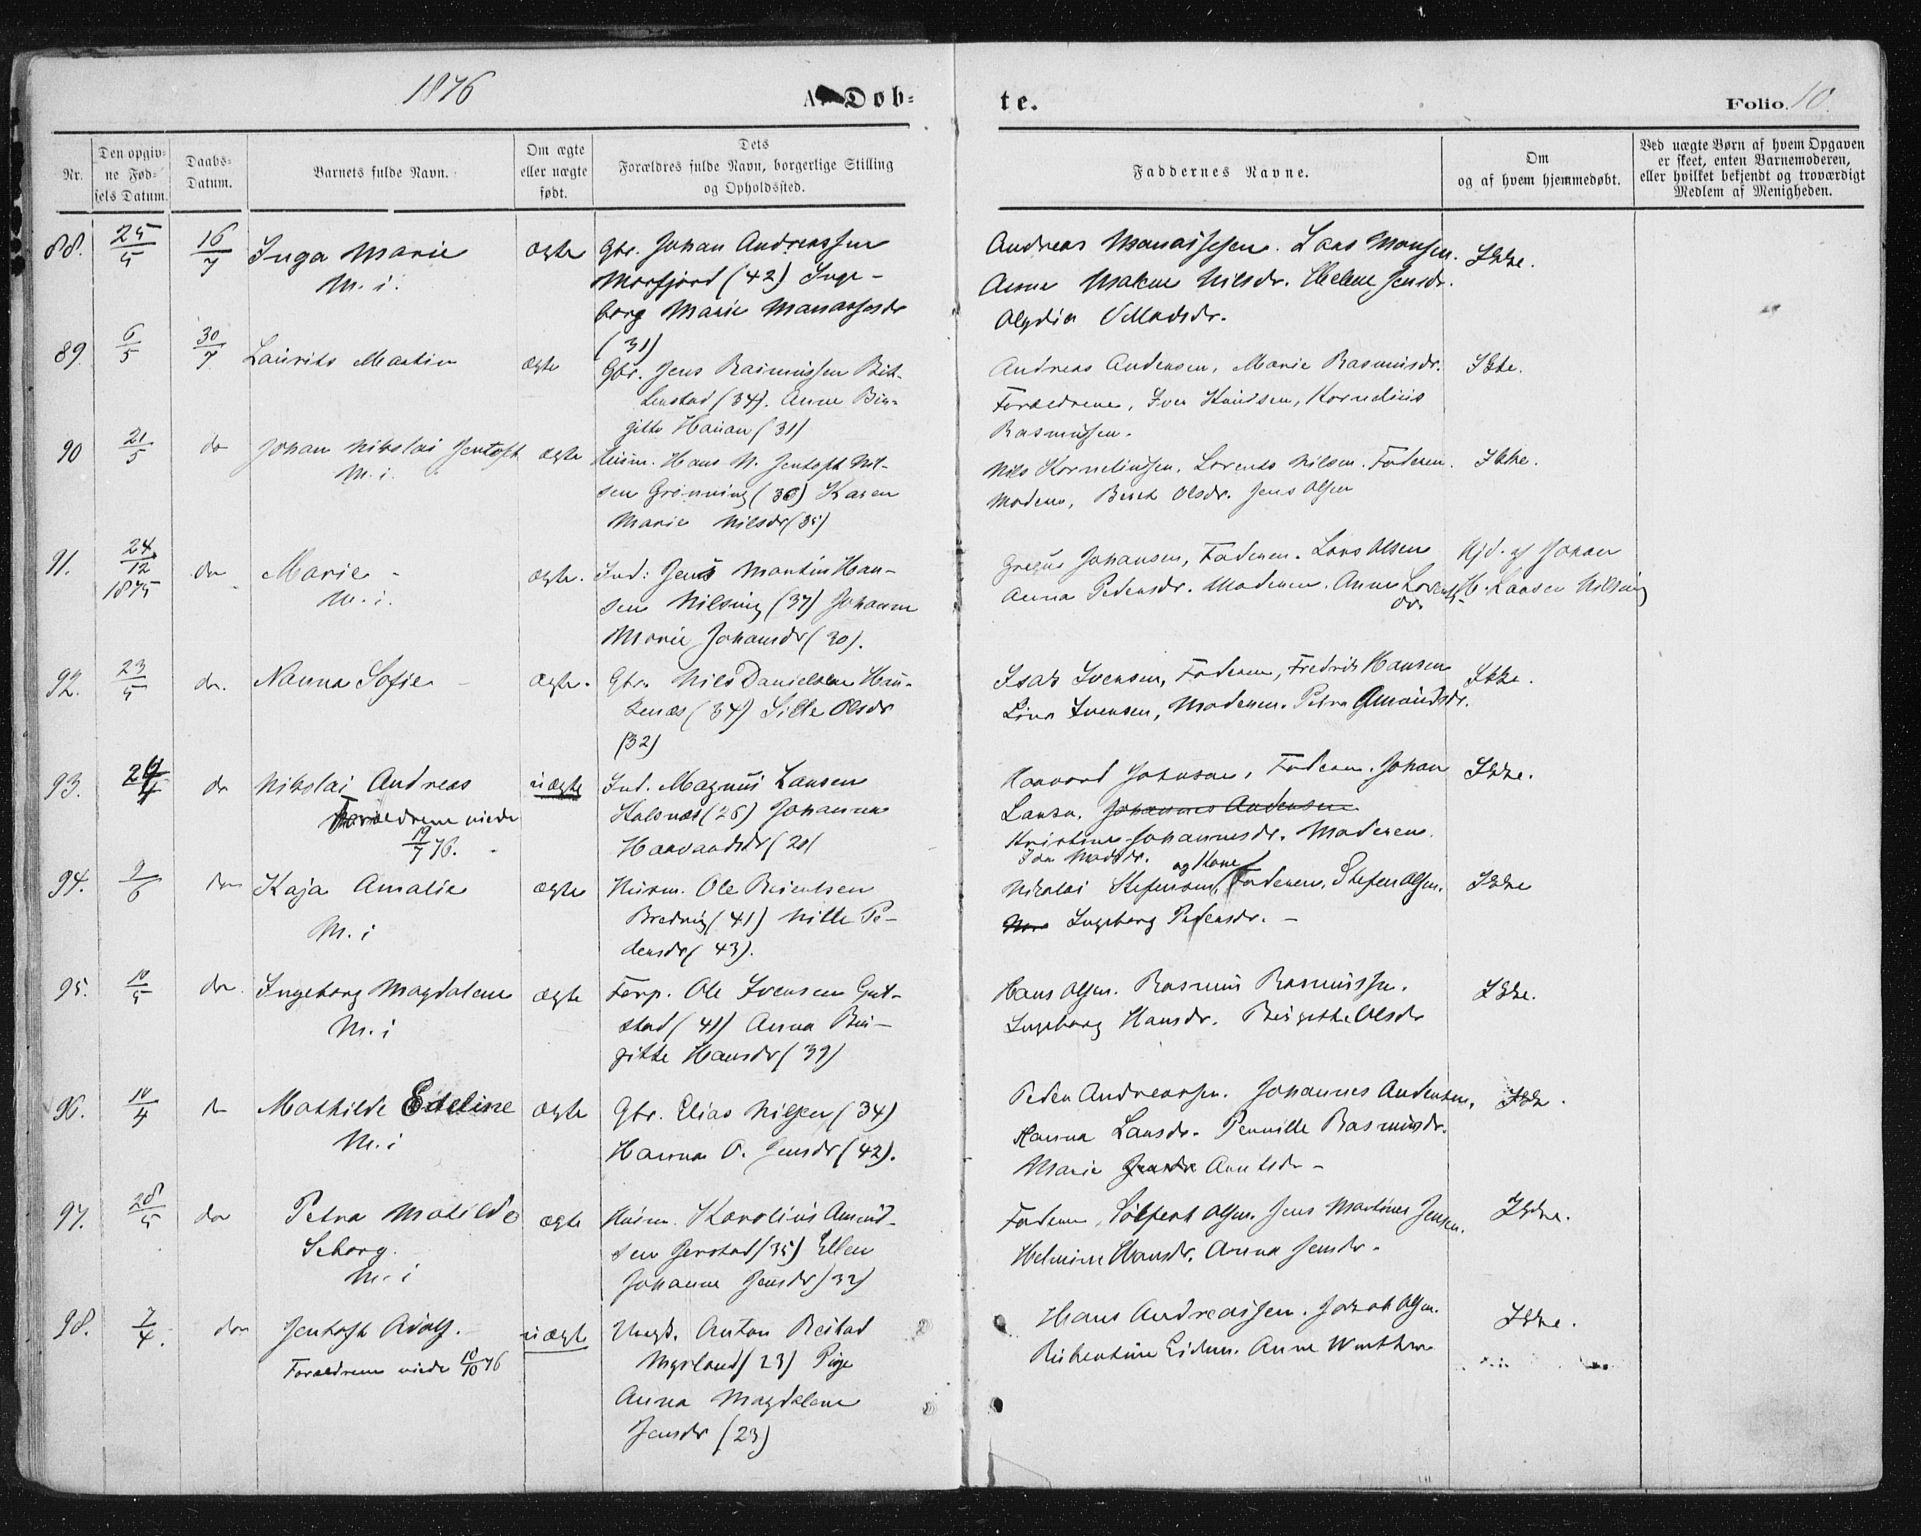 1876
A. Døb=
te.
Folio. 10.
Nr.
Den opgiv-
ne Fød-
sels Datum.
Daabs-
Datum.
Barnets fulde Navn.
Om ægte
eller uægte
født.
Dets
Forældres fulde Navn, borgerlige Stilling
og Opholdssted.
Faddernes Navne.
Om
og af hvem hjemmedøbt.
Ved uægte Børn af hvem Opgaven
er skeet, enten Barnemoderen,
eller hvilket bekjendt og troværdigt
Medlem af Menigheden.
88. 25/5 16/7 Inga Marie ægte Gbr. Johan Andreassen
M. i. Morfjord (42) Inge-
borg Marie Manassesdr
(31)
Andreas Manassesen. Lars Monsen. Ikke.
Anne Nilsdr. Helene Jensdr.
Alydia Madsdr.
89. 6/5 30/7 Laurits Martin ægte Gbr. Jens Rasmussen
(34). Anne Bir-
gitte (31)
Andreas Andersen, Marie Rasmusdr. Ikke.
Forældrene, Iver Knudsen, Kornelius
Rasmussen.
90 21/5 do Johan Nikolai Jentoft ægte Husm. Hans N. Jentoft Nil-
M. i. sen Grønning (36) Karen
Marie Nilsdr (35)
Nils Korneliussen, Lorents Nilsen. Faderen. Ikke.
Moderen, Olsdr. Jens Olsen
91. 24/12 1875 do Marie - ægte. Ind: Jens Martin Han-
M. i. sen Nilsing (37) Johanne
Marie Johansdr (30).
Johansen, Faderen. Lars Olsen Hjd. af Johan
Anna Pedersdr. Moderen. Anne Lorents- Larsen Nilsing
dr
92. 23/5 do. Nanna Sofie - ægte. Gbr. Nils Danielsen Hau-
kenæs (34) Silke Olsdr
(32)
Isak Iversen, Faderen, Fredrik Hansen Ikke.
Lina Iversen, Moderen. Petra Amundsdr.
93. do Nikolai Andreas uægte Ind. Magnus Larsen
Forældrene viede Kalsnæs (26) Johanna
19/7 76. Haavardsdr (20)
Haavard Johnsen, Faderen. Johan Ikke.
Larsen. Johannes Andersen
Kristine Johannesdr. Moderen.
Ida Madsdr.
94. 9/6 do Kaja Amalie ægte Husm. Ole Berentsen
M. i Bredvig (41) Nille Pe-
dersdr (43).
og Kone
Nikolai Stefensen, Faderen, Stefen Olsen. Ikke
Ingeborg Pedersdr. -
95. 10/5 do. Ingeborg Magdalene ægte Forp. Ole Iversen Gul-
M. i stad (41) Anna Bir-
gitte Hansdr (39)
Hans Olsen. Rasmus Rasmussen. Ikke.
Ingeborg Hansdr. Birgitte Olsdr
96. 14/4 do Mathilde Edeline ægte Gbr. Elias Nilsen (34)
M. i Hanna O. Jensdr (42).
Peder Andreassen. Johannes Andersen, Ikke.
Hanna Larsdr. Pernille Rasmusdr.
Marie Jensdr Arntsdr -
97. 28/5 do Petra Matilde ægte Husm. Karolius Amund-
Seberg. sen Jerstad (35) Ellen
M. i Johanne Jensdr (32)
Faderen, Olsen. Jens Martines Jensen. Ikke.
Helmine Hansdr. Anna Jensdr.
98. 7/4. do Jentoft Adolf. uægte Ungk. Anton Reistad
Forældrene viede 10/10 76 Myrland (23) Pige
Anna Magdalene
Jensdr (23)
Hans Andreassen. Jakob Olsen. Ikke.
Anne